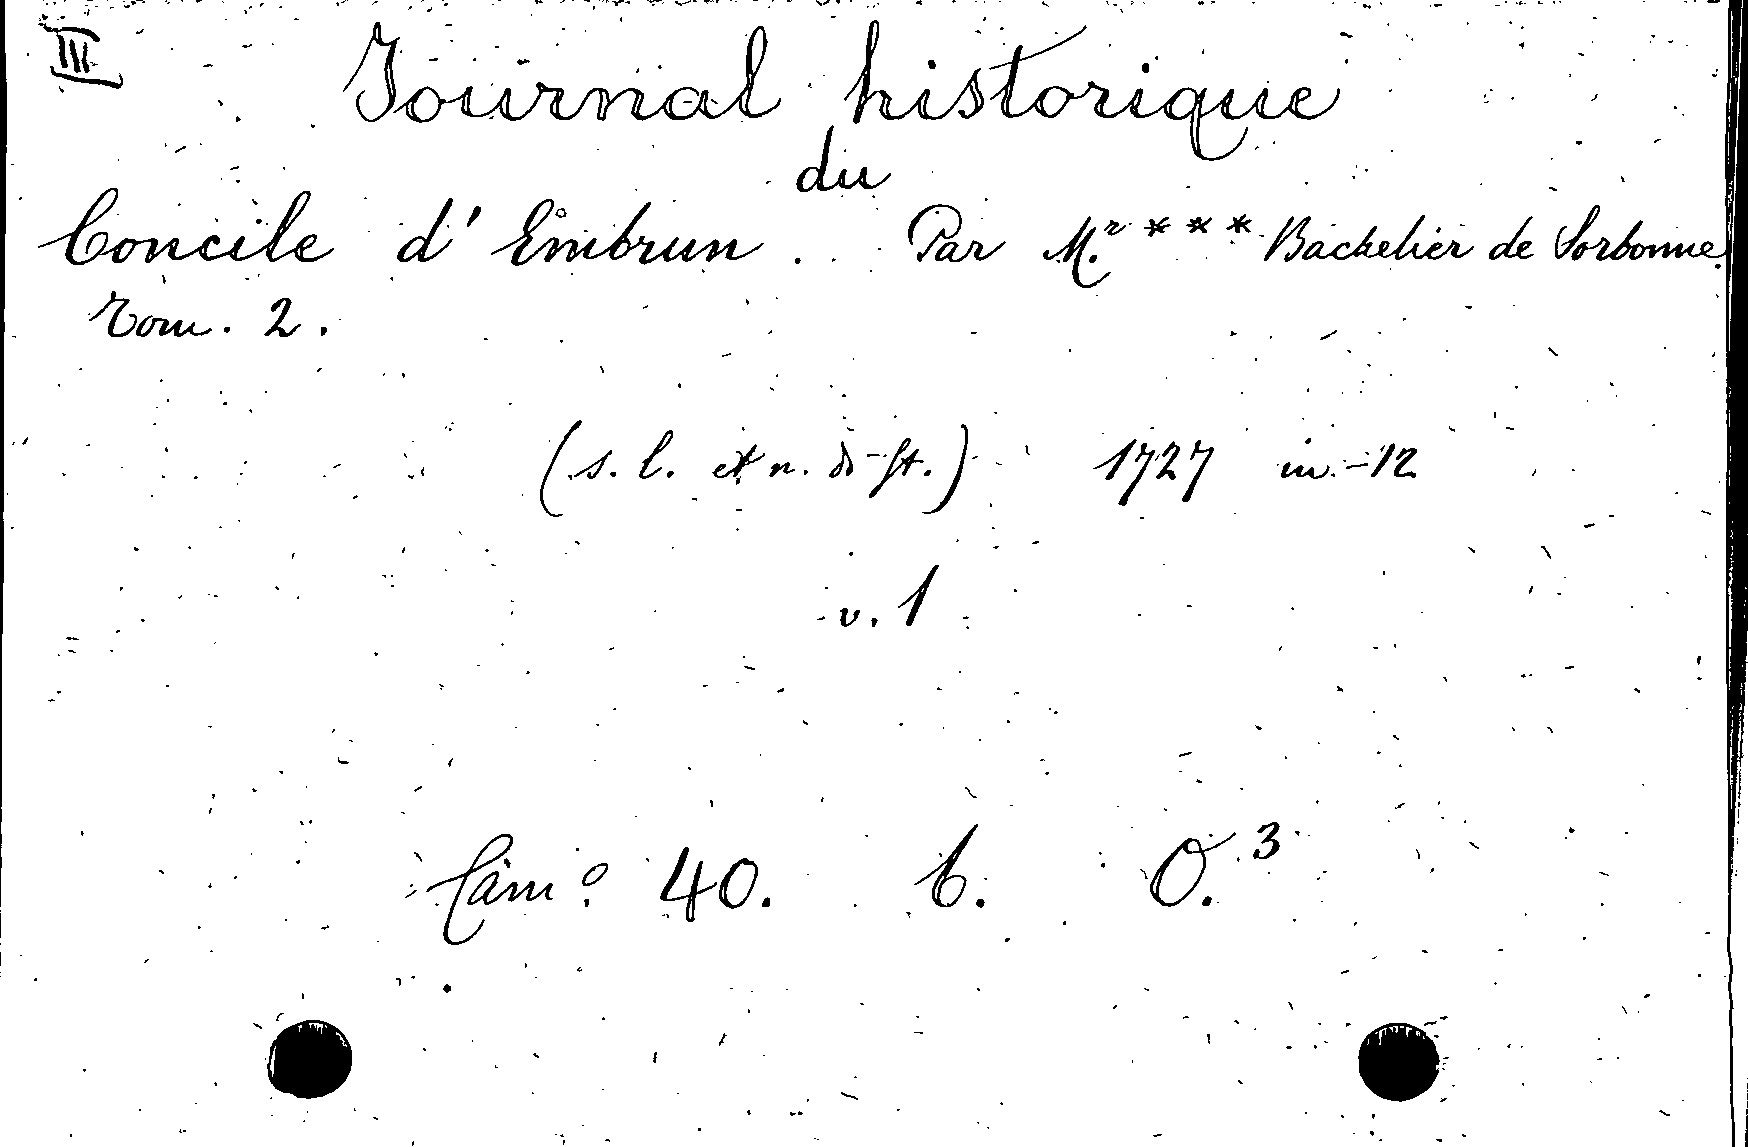 III
Journal historique
du
Concile d'Embrun. Par M.r *** Bachelier de Sorbonne.
Tom. 2.
(s. l. et n. d-st.) 1727 in-12
v. 1
Cam.o 40. b. O.3